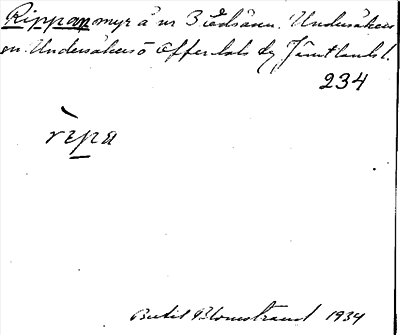 Rippanmyr å nr 3 Edsåsen. Undersåkers
sn. Undersåkers o Offerdals tg Jämtlands l.
234
rìpa
Bertil Blomstrand 1934